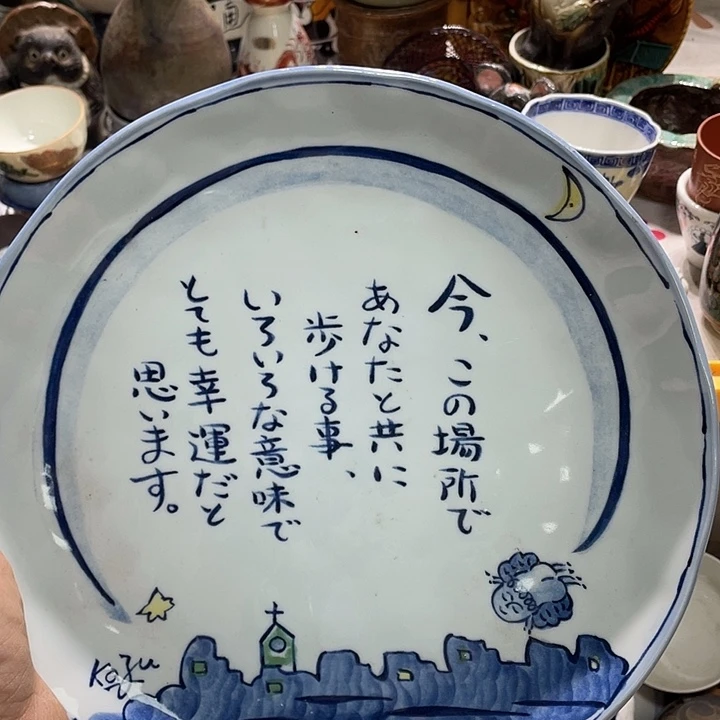 今、この場所で
あなたと共に
歩ける事、
いろいろな意味で
とても幸運だと
思います。
Kazu